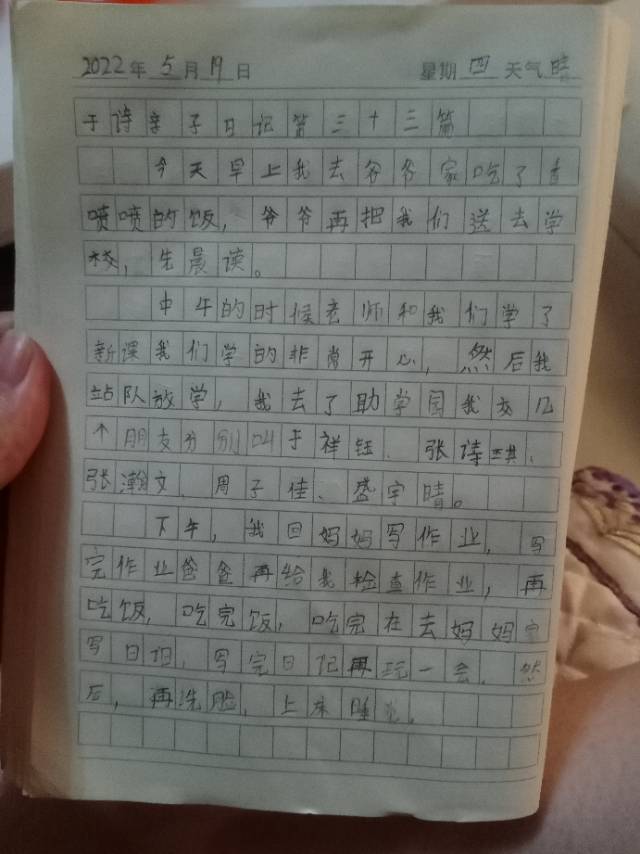 2022年 5月 19日 星期 四 天气 晴
于诗亲子日记第三十三篇
今天早上我去爷爷家吃了香
喷喷的饭，爷爷再把我们送去学
校，先晨读。
中午的时候老师和我们学了
新课我们学的非常开心，然后我
站队放学，我去了助学园我交几
个朋友分别叫于祥钰、张诗琪、
张瀚文、周子佳、盛宇晴。
下午，我回妈妈写作业，写
完作业爸爸再给我检查作业，再
吃饭，吃完饭，吃完在去妈妈家
写日记，写完日记再玩一会，然
后，再洗脸，上床睡